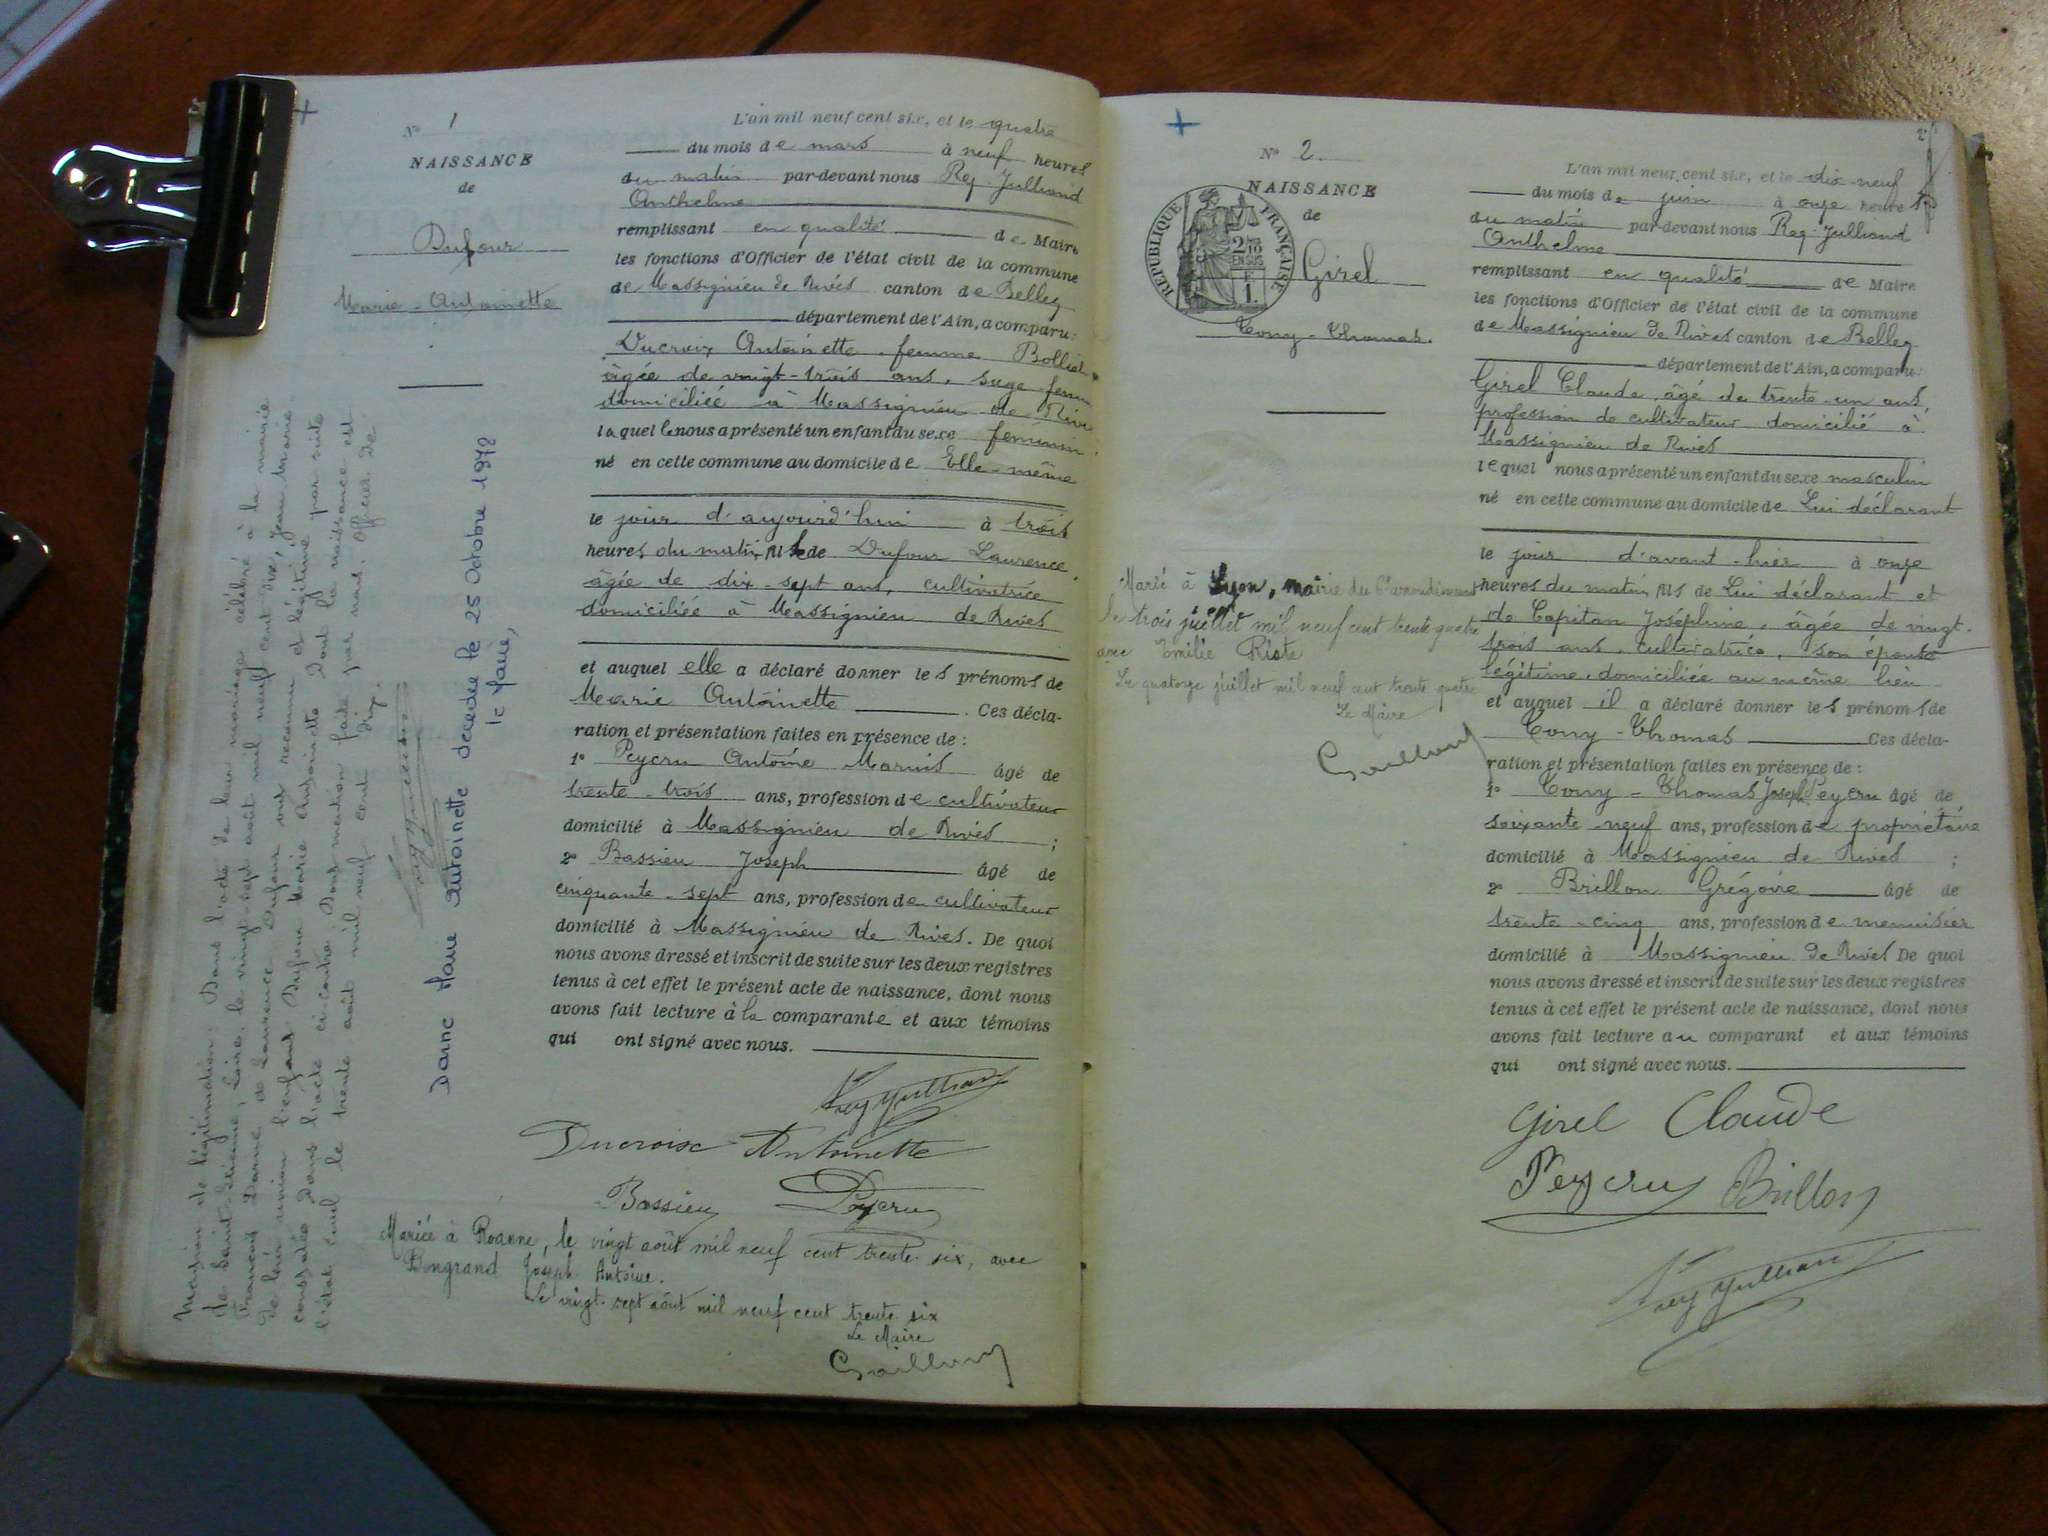 N° 1
NAISSANCE
de
Dufour
Marie-Antoinette
L'an mil neuf cent six, et le quatre
du mois de mars à neuf heures
du matin par-devant nous Rey-Julliand
Anthelme
remplissant en qualité de Maire
les fonctions d'Officier de l'état civil de la commune
de Massignieu de Rives canton de Belley
département de l'Ain, a comparu:
Ducroix Antoinette femme Bolliet
âgée de vingt-trois ans, sage-femme
domiciliée à Massignieu de Rives
laquelle nous a présenté un enfant du sexe féminin
né en cette commune au domicile de Elle-même
le jour d'aujourd'hui à trois
heures du matin, fille de Dufour Laurence,
âgée de dix-sept ans, cultivatrice
domiciliée à Massignieu de Rives
et auquel elle a déclaré donner les prénoms de
Marie Antoinette. Ces décla-
ration et présentation faites en présence de:
1° Peycru Antoine Marius âgé de
trente-trois ans, profession de cultivateur
domicilié à Massignieu de Rives;
2° Bassieu Joseph âgé de
cinquante-sept ans, profession de cultivateur
domicilié à Massignieu de Rives. De quoi
nous avons dressé et inscrit de suite sur les deux registres
tenus à cet effet le présent acte de naissance, dont nous
avons fait lecture à la comparante et aux témoins
qui ont signé avec nous.
Rey Julliand
Ducroix Antoinette
Bassieu Peycru
Mariée à Roanne, le vingt août mil neuf cent trente six, avec
Joseph Antoine.
Le vingt-sept août mil neuf cent trente six
Le Maire
Mention de légitimation: Dans l'acte de leur mariage célébré à la mairie
de Saint-Etienne, Loire, le vingt-sept août mil neuf cent dix, Jean Marie
François Darne & Laurence Dufour ont reconnu et légitimé par suite
de leur union l'enfant Dufour Marie Antoinette dont la naissance est
constatée dans l'acte ci-contre. Dont mention faite par nous. Officier de
l'état civil le trente août mil neuf cent dix.
Rey Julliand
Darne Marie Antoinette décédée le 25 Octobre 1978
le Maire,
N° 2
NAISSANCE
de
RÉPUBLIQUE FRANÇAISE
2/10
EN SUS
F
1.
Girel
Tony-Thomas.
L'an mil neuf cent six, et le dix-neuf
du mois de juin à onze heures
du matin par-devant nous Rey-Julliand
Anthelme
remplissant en qualité de Maire
les fonctions d'Officier de l'état civil de la commune
de Massignieu de Rives canton de Belley
département de l'Ain, a comparu:
Girel Claude, âgé de trente-un ans,
profession de cultivateur domicilié à
Massignieu de Rives
lequel nous a présenté un enfant du sexe masculin
né en cette commune au domicile de Lui déclarant
le jour d'avant-hier à onze
heures du matin, fils de Lui déclarant et
de Capitan Joséphine, âgée de vingt-
trois ans, cultivatrice, son épouse
légitime, domiciliée au même lieu
et auquel il a déclaré donner les prénoms de
Tony-Thomas Ces décla-
ration et présentation faites en présence de:
1° Tony-Thomas Joseph Peycru âgé de
soixante-neuf ans, profession de propriétaire
domicilié à Massignieu de Rives;
2° Brillon Grégoire âgé de
trente-cinq ans, profession de menuisier
domicilié à Massignieu de Rives De quoi
nous avons dressé et inscrit de suite sur les deux registres
tenus à cet effet le présent acte de naissance, dont nous
avons fait lecture au comparant et aux témoins
qui ont signé avec nous.
Girel Claude
Peycru Brillon
Rey Julliand
Marié à Lyon, mairie du arrondissement
le trois juillet mil neuf cent trente quatre
avec Emilie
Le quatorze juillet mil neuf cent trente quatre
Le Maire